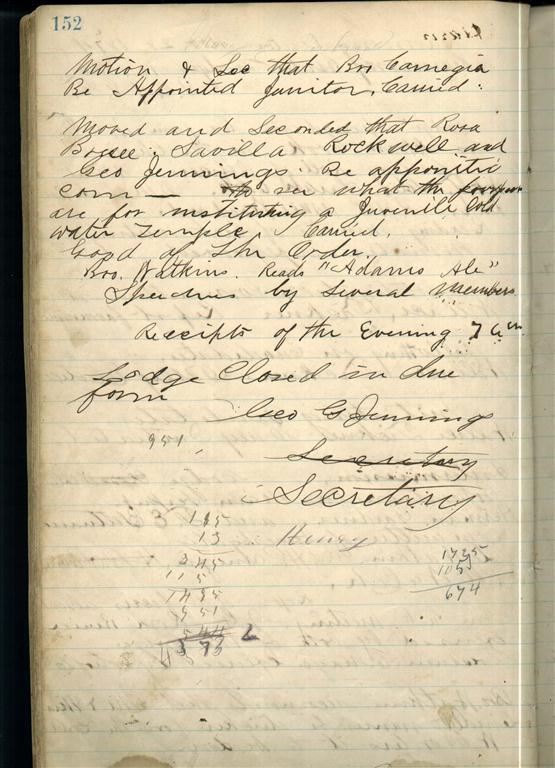 152
Motion & Sec that Bro Carnegia
Be Appointed Janitor. Carried.
Moved and Seconded that Rosa
Savilla Rockwell and
Geo Jennings. Be appointed
com — to see what the
are for instituting a Juvenile Cold
Water Temple. Carried.
Good of The Order.
Bro. Watkins. Reads "Adams Ale"
Speeches by Several Members
Receipts of the Evening
Lodge Closed in due
form
Geo G Jennings
951
Secretary
Secretary
Henry
13
345
115
951
674